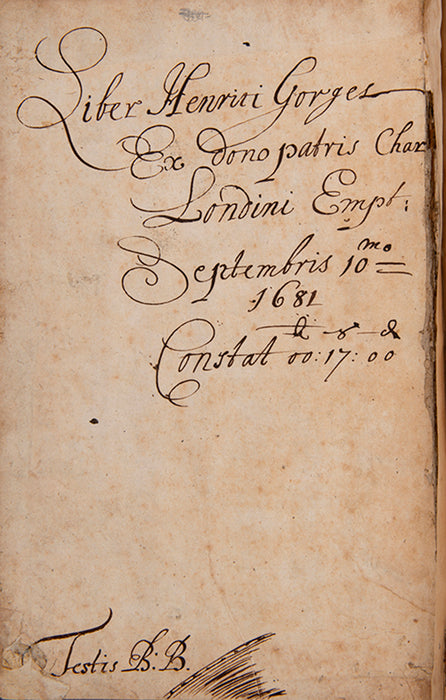 Liber Henrici Gorges
Ex dono patris Char
Londini Empt:
Septembris 10mo
1681
£ s d
Constat 00: 17: 00
Testis B: B.